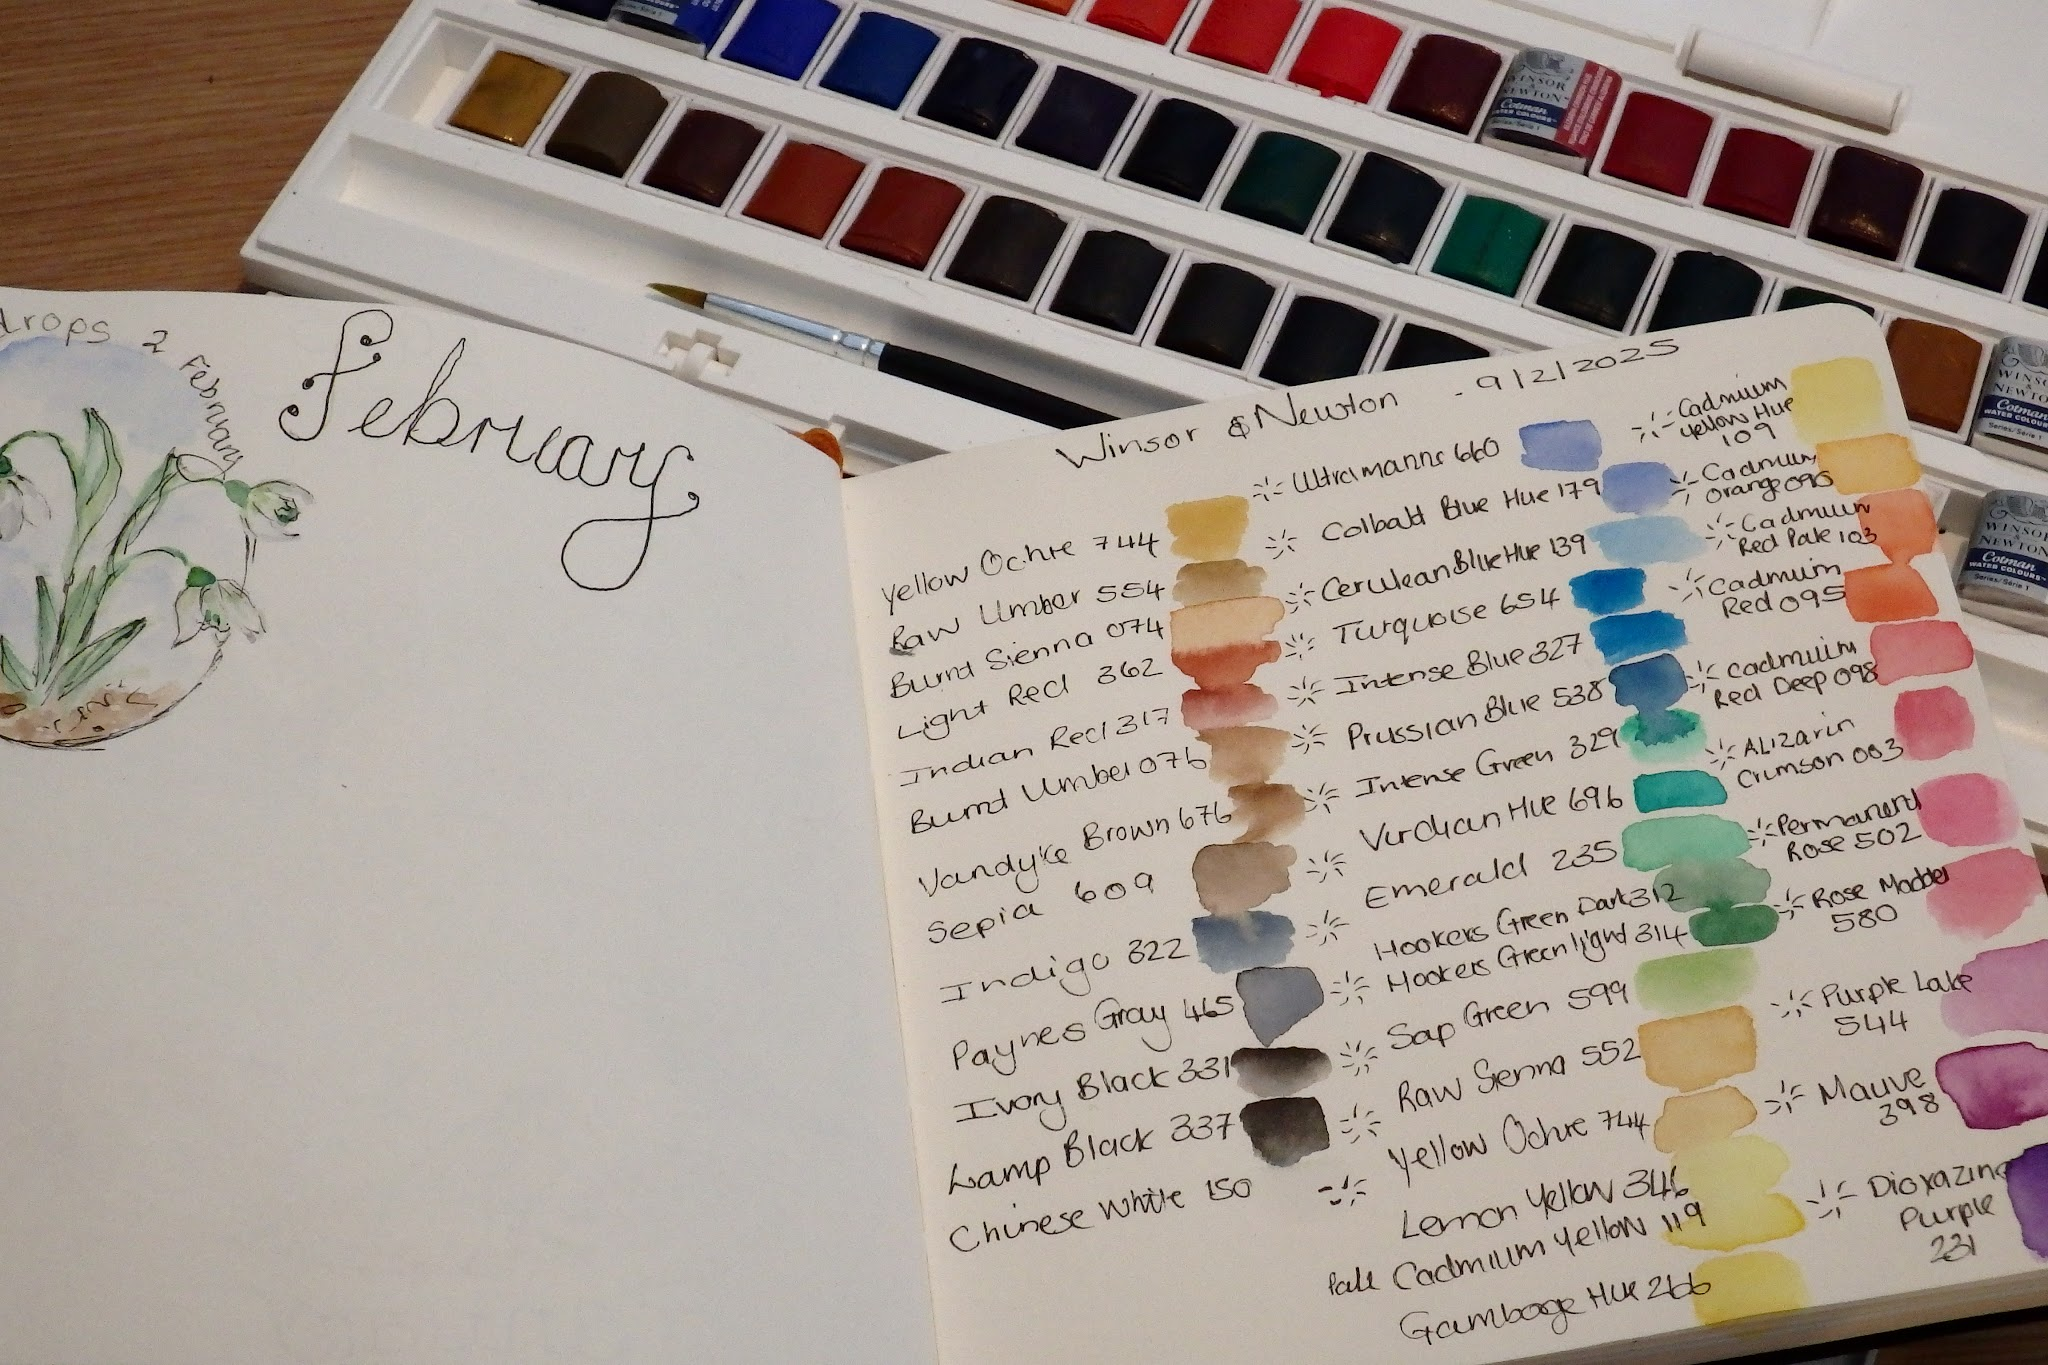 drops 2 February
February
Winsor & Newton - 9/2/2025
Yellow Ochre 744
Raw Umber 554
Burnt Sienna 074
Light Red 362
Indian Red 317
Burnt Umber 076
Vandyke Brown 676
Sepia 609
Indigo 322
Paynes Gray 465
Ivory Black 331
Lamp Black 337
Chinese White 150
660
Colbalt Blue Hue 179
Cerulean Blue Hue 139
Turquoise 654
Intense Blue 327
Prussian Blue 538
Intense Green 329
Viridian Hue 696
Emerald 235
Hookers Green Dark 312
Hookers Green light 314
Sap Green 599
Raw Sienna 552
Yellow Ochre 744
Lemon Yellow 346
Pale Cadmium Yellow 119
Gamboge Hue 266
Cadmium
Yellow Hue
109
Cadmium
Orange 090
Cadmium
Red Pale 103
Cadmium
Red 095
Cadmium
Red Deep 098
Alizarin
Crimson 003
Permanent
Rose 502
Rose Madder
580
Purple Lake
544
Mauve
398
Dioxazine
Purple
231
WINSOR
& NEWTON
Cotman
WATER COLOURS
Series/Série 1
WINSOR
NEWTON
Cotman
WATER COLOURS
Series/Série 1
WINSOR
NEWTON
Cotman
WATER COLOURS
Series/Série 1